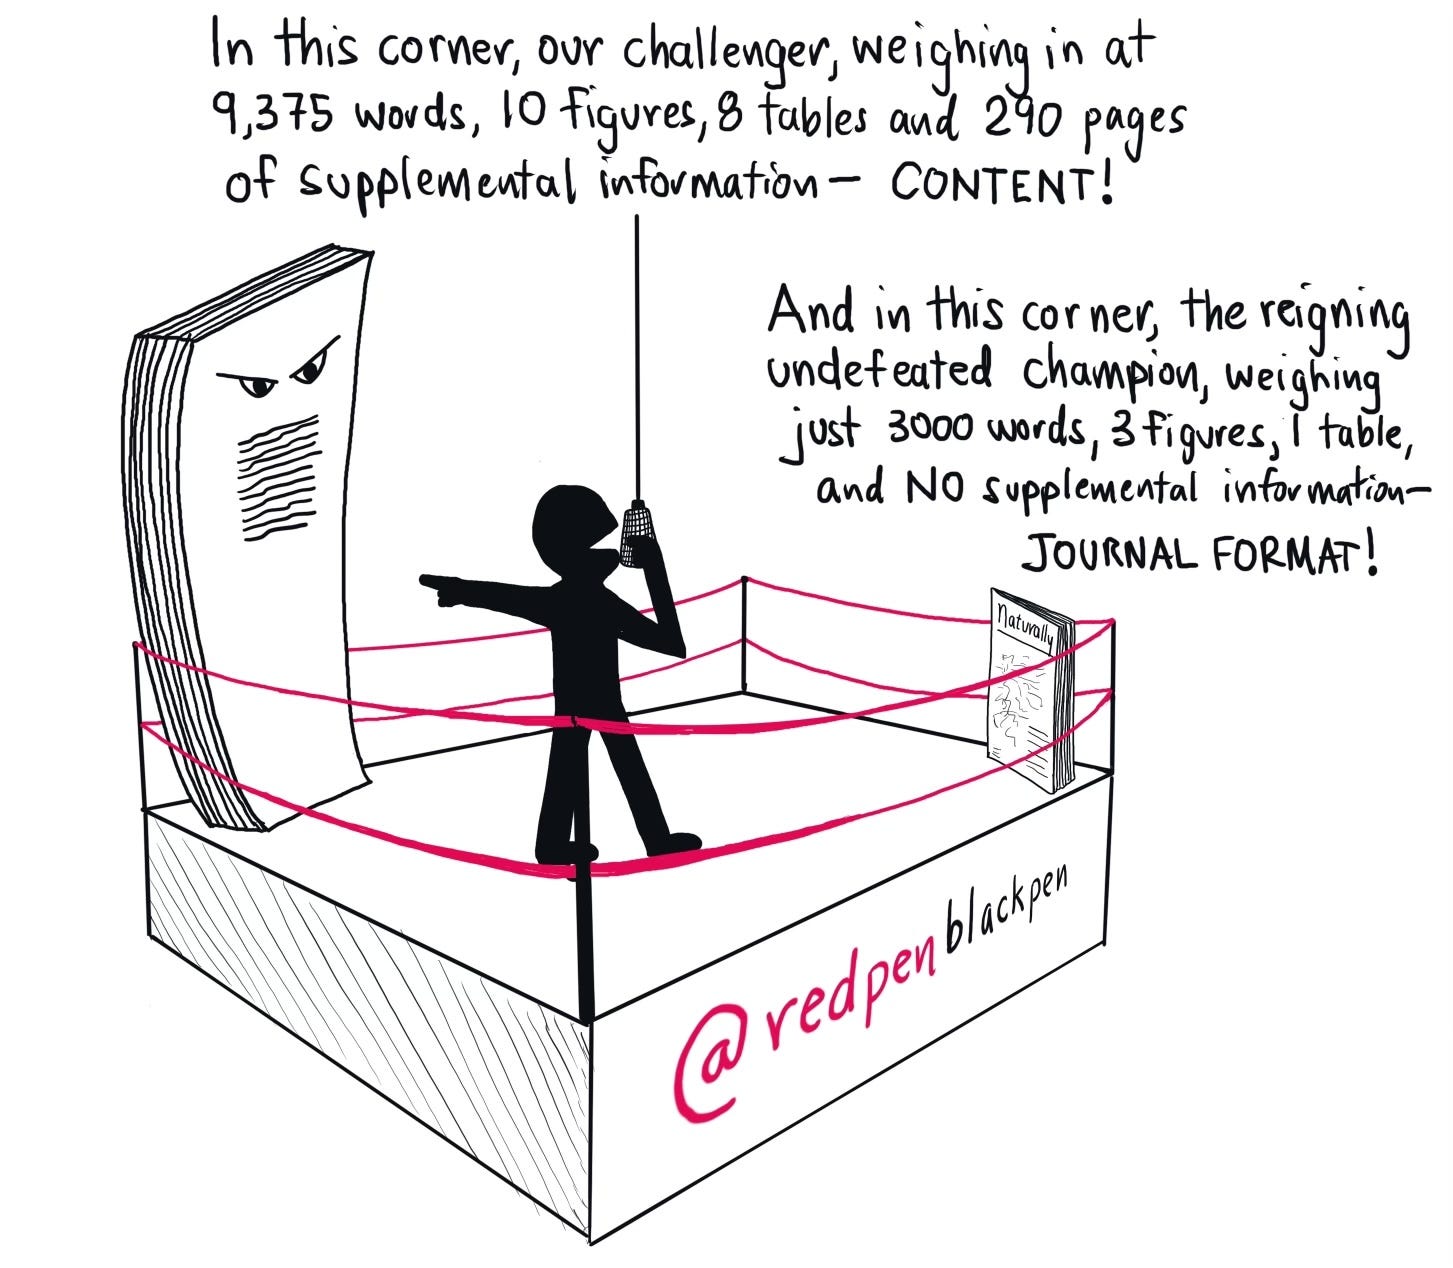 In this corner, our challenger, weighing in at
9,375 words, 10 figures, 8 tables and 290 pages
of supplemental information— CONTENT!
And in this corner, the reigning
undefeated champion, weighing
just 3000 words, 3 figures, 1 table,
and NO supplemental information—
JOURNAL FORMAT!
Naturally
@redpenblackpen